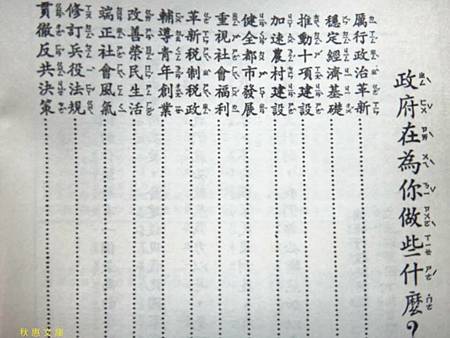 政府在為你做些什麼?
厲行政治革新
穩定經濟基礎
推動十項建設
加速農村建設
健全都市發展
重視社會福利
革新稅制稅政
輔導青年創業
改善榮民生活
端正社會風氣
修訂兵役法規
貫徹反共決策
秋惠文庫